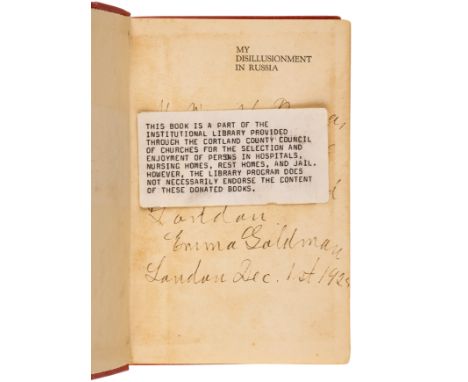 MY
DISILLUSIONMENT
IN RUSSIA
THIS BOOK IS A PART OF THE
INSTITUTIONAL LIBRARY PROVIDED
THROUGH THE CORTLAND COUNTY COUNCIL
OF CHURCHES FOR THE SELECTION AND
ENJOYMENT OF PERSONS IN HOSPITALS,
NURSING HOMES, REST HOMES, AND JAIL.
HOWEVER, THE LIBRARY PROGRAM DOES
NOT NECESSARILY ENDORSE THE CONTENT
OF THESE DONATED BOOKS.
Emma Goldman
London Dec. 1st